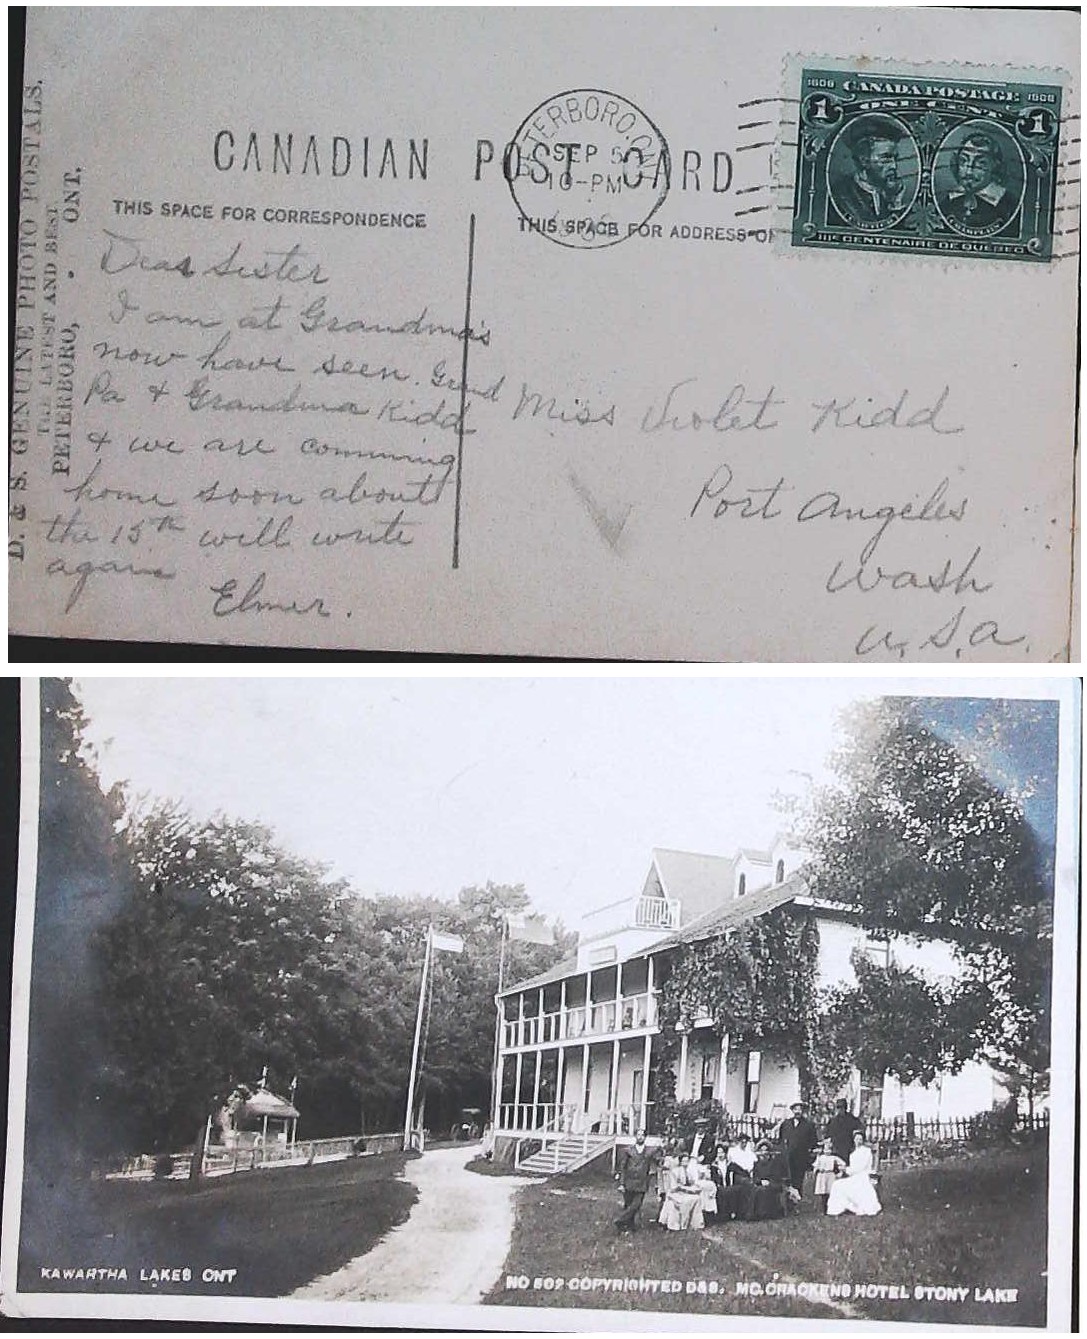 D. & S. GENUINE PHOTO POSTALS.
THE LATEST AND BEST.
PETERBORO, . ONT.
CANADIAN POST CARD
THIS SPACE FOR CORRESPONDENCE
THIS SPACE FOR ADDRESS O
PETERBORO, ONT
SEP 5
10-PM
1608 CANADA POSTAGE 1908
1 ONE CENT 1
CARTIER CHAMPLAIN
IIIe CENTENAIRE DE QUÉBEC
Dear Sister
I am at Grandma's
now have seen. Grand
Pa & Grandma Kidd
& we are comming
home soon about
the 15th will write
again
Elmer.
Miss Violet Kidd
Port Angeles
Wash
U.S.a.
KAWARTHA LAKES ONT
NO 502 COPYRIGHTED D&S. MC.CRACKENS HOTEL STONY LAKE